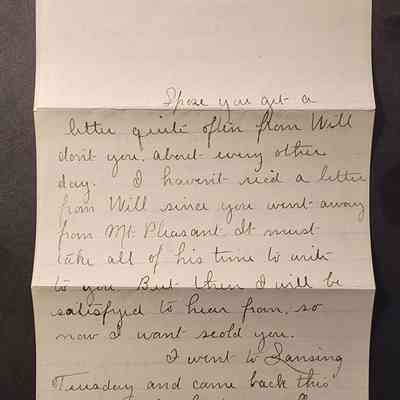 Spose you get a
letter quite often from Will
don't you, about every other
day. I haven't rec'd a letter
from Will since you went away
from Mt. Pleasant. It must
take all of his time to write
to you. But then I will be
satisfyed to hear from, so
now I want scold you.
I went to Lansing
Tuesday and came back this